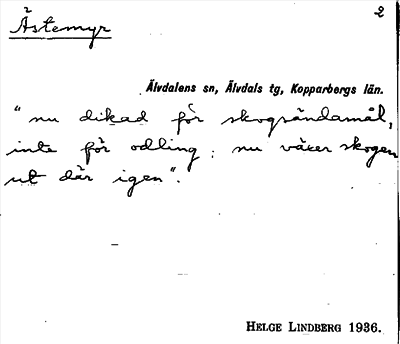 Ästemyr
2
Älvdalens sn, Älvdals tg, Kopparbergs län.
"nu dikad för skogsändamål,
inte för odling; nu växer skogen
ut där igen".
HELGE LINDBERG 1936.